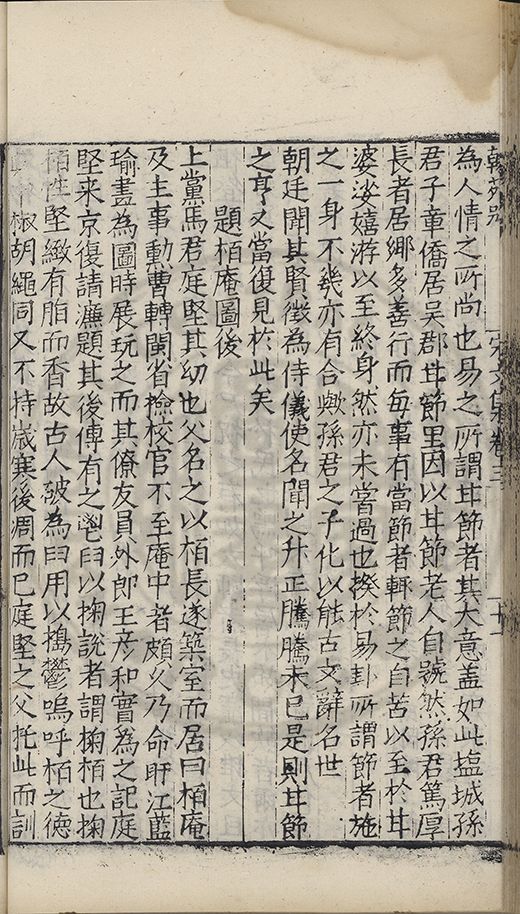 翰苑別 宋文集卷三 十一
為人情之所尚也易之所謂甘節者其大意盖如此塩城孫
君子章僑居吴郡甘節里因以甘節老人自號然孫君篤厚
長者居鄉多善行而每事有當節者輙節之自苦以至於甘
婆娑嬉游以至終身然亦未甞過也揆於易卦所謂節者施
之一身不幾亦有合歟孫君之子化以能古文辭名世
朝廷聞其賢徵為侍儀使名聞之升正騰騰未已是則甘節
之亨又當復見於此矣
題栢庵圖後
上黨馬君庭堅其幼也父名之以栢長遂築室而居曰栢庵
及主事勲曹轉閩省撿校官不至庵中者頗乆乃命盱江藍
瑜畫為圖時展玩之而其僚友員外郎王彦和實為之記庭
堅来京復請濓題其後傳有之鬯臼以掬說者謂椈栢也掬
栢性堅緻有脂而香故古人破為臼用以搗鬱嗚呼栢之德
申椒胡繩同又不持歲寒後凋而已庭堅之父托此而訓